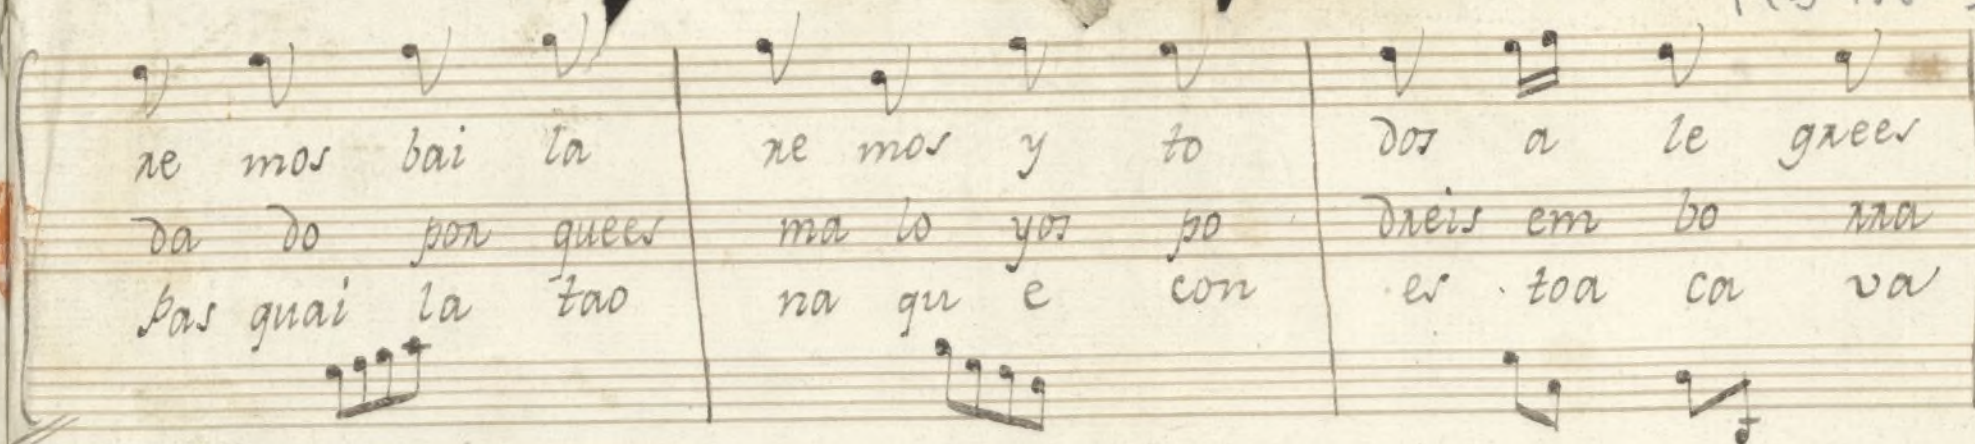 re mos bai la re mos y to dos a le grees
da do por quees ma lo yos po dreis em bo rra
Pas quai la tao na qu e con es toa ca va